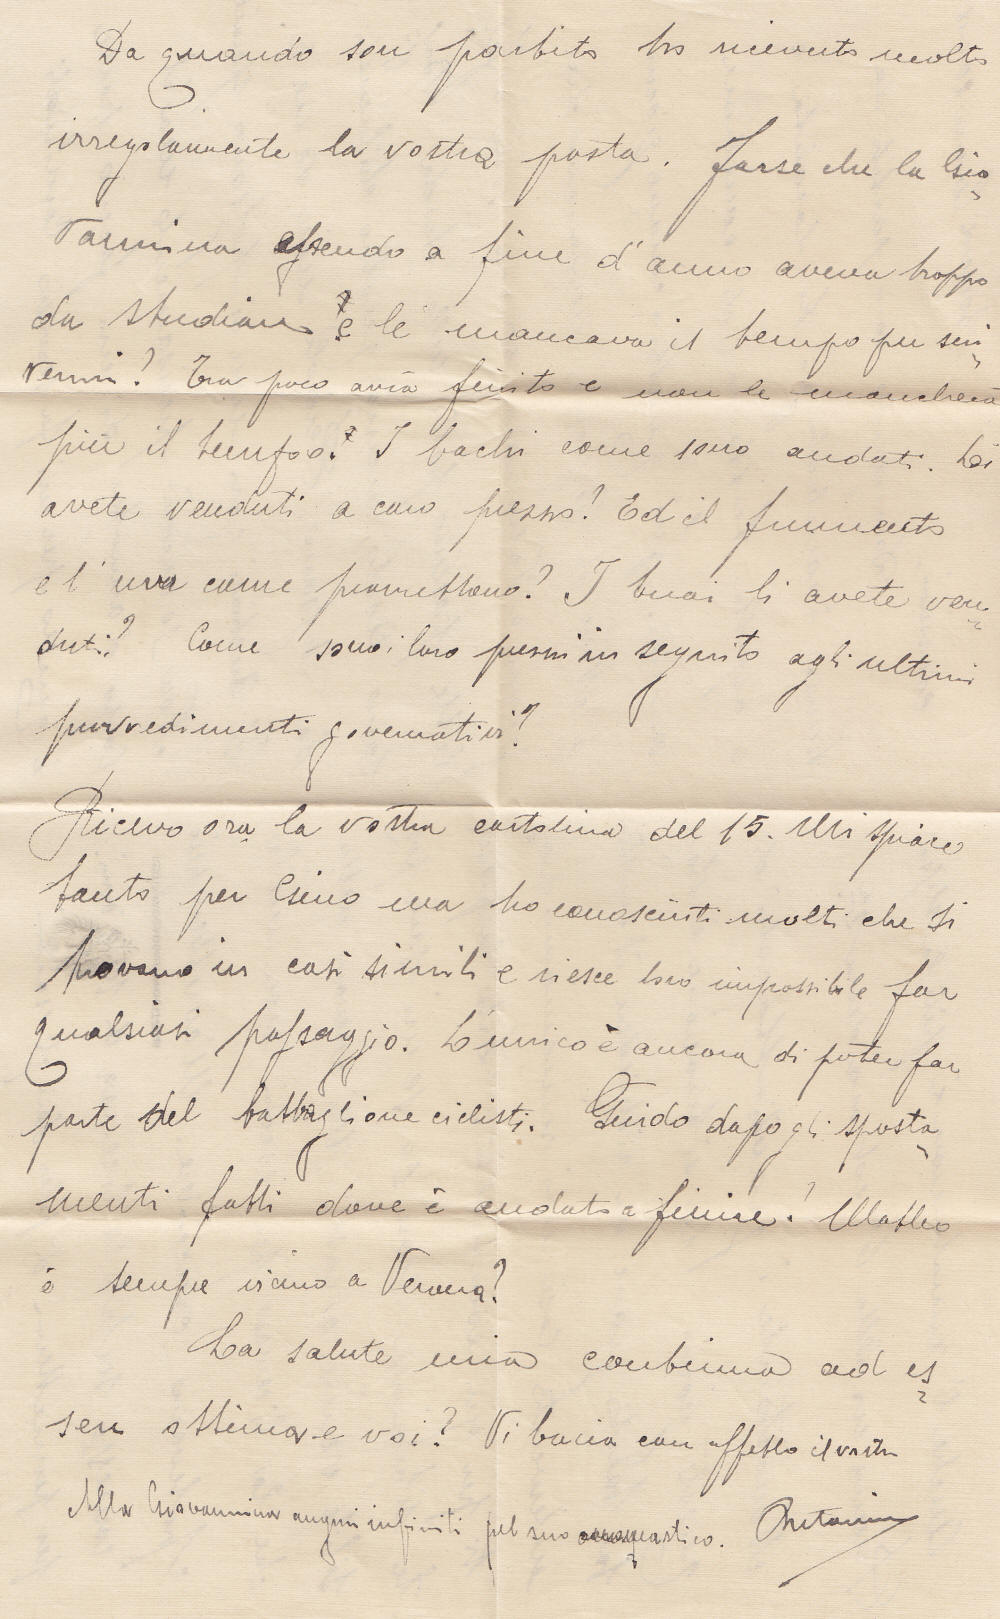 Da quando son partito ho ricevuto molto
irregolarmente la vostra posta. Forse che la Gio=
vannina essendo a fine d'anno aveva troppo
da studiare e le mancava il tempo per scri=
vermi? Tra poco avrà finito e non le mancherà
più il tempo? I bachi come sono andati. Li
avete venduti a caro prezzo? Ed il frumento
e l'uva come promettono? I buoi li avete ven=
duti? Come sono i loro prezzi in seguito agli ultimi
provvedimenti governativi?
Ricevo ora la vostra cartolina del 15. Mi spiace
tanto per Gino ma ho conosciuti molti che si
trovano in casi simili e riesce loro impossibile far
qualsiasi passaggio. L'unico è ancora di poter far
parte del battaglione ciclisti. Guido dopo gli sposta=
menti fatti dove è andato a finire? Matteo
è sempre vicino a Verona?
La salute mia continua ad es=
sere ottima e voi? Vi bacia con affetto il vostro
Alla Giovannina auguri infiniti pel suo onomastico. Antonio